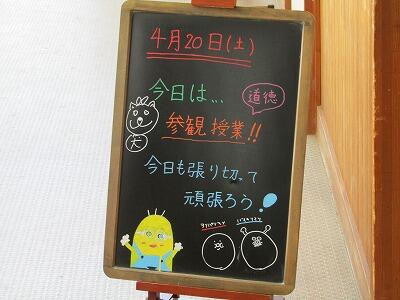 4月20日(土)
今日は...
道徳
参観授業!!
犬
今日も張り切って
頑張ろう!